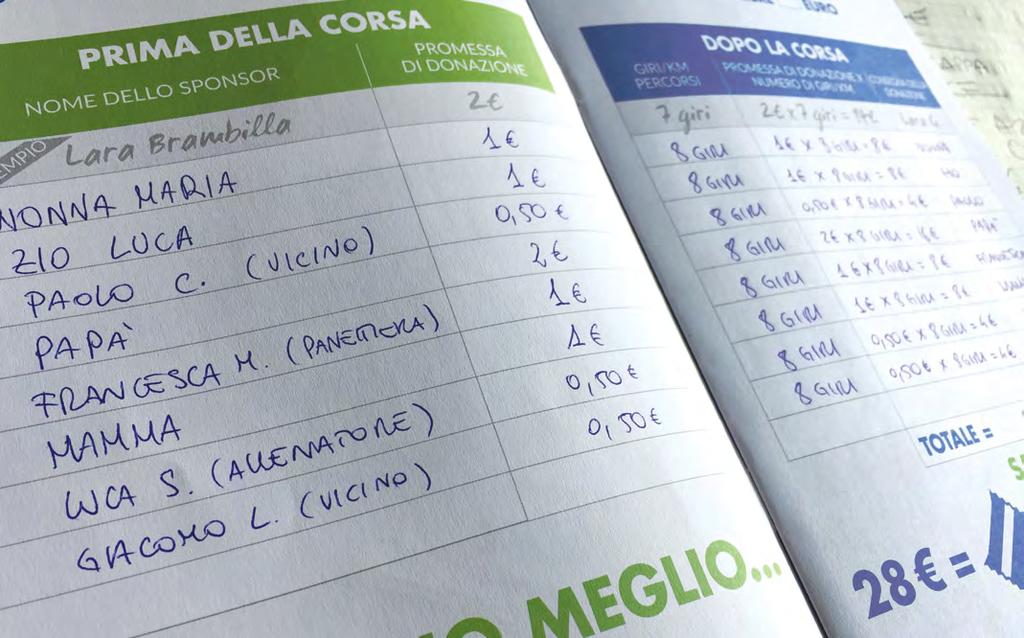 PRIMA DELLA CORSA
NOME DELLO SPONSOR
PROMESSA
DI DONAZIONE
EMPIO
Lara Brambilla 2€
NONNA MARIA 1€
ZIO LUCA 1€
PAOLO C. (VICINO) 0,50€
PAPÀ 2€
FRANCESCA M. (PANETTIERA) 1€
MAMMA 1€
LUCA S. (ALLENATORE) 0,50€
GIACOMO L. (VICINO) 0,50€
MEGLIO...
EURO
DOPO LA CORSA
GIRI/KM
PERCORSI
PROMESSA DI DONAZIONE X
NUMERO DI GIRI/KM
DONAZIONE
7 giri 2€ x 7 giri = 14€
8 GIRI 1€ X 8 GIRI = 8€
8 GIRI 1€ X 8 GIRI = 8€
8 GIRI 0,50€ X 8 GIRI = 4€
8 GIRI 2€ X 8 GIRI = PAPÀ
8 GIRI 1€ X 8 GIRI = 8€
8 GIRI 1€ X 8 GIRI = 8€
8 GIRI 0,50€ X 8 GIRI = 4€
8 GIRI 0,50€ X 8 GIRI = 4€
TOTALE =
28€ =